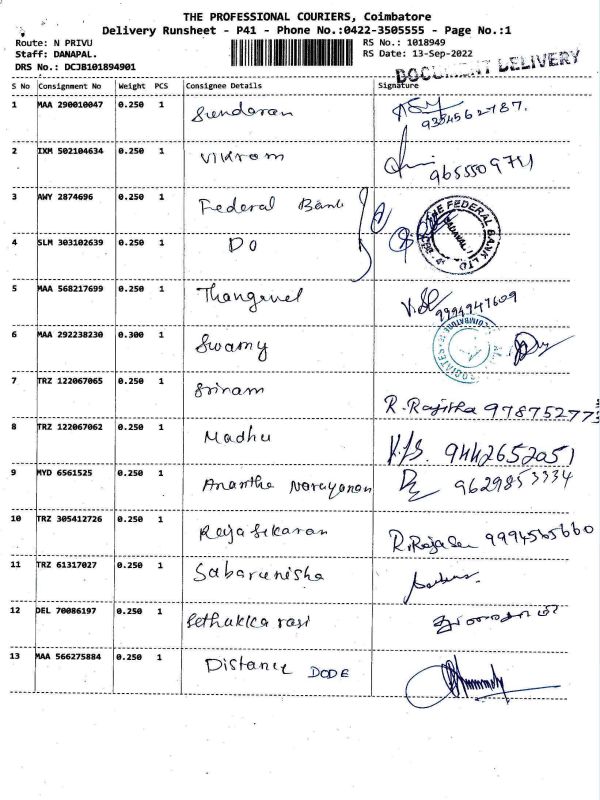 THE PROFESSIONAL COURIERS, Coimbatore
Delivery Runsheet - P41 - Phone No.:0422-3505555 - Page No.:1
Route: N PRIVU RS No.: 1018949
Staff: DANAPAL. RS Date: 13-Sep-2022
DRS No.: DCJB101894901
DOCUMENT DELIVERY
S No Consignment No Weight PCS Consignee Details Signature
1 MAA 290010047 0.250 1 Sundaran 9364562787.
2 IXM 502104634 0.250 1 Vikram
3 AWY 2874696 0.250 1 Federal Bank THE FEDERAL BANK LTD
4 SLM 303102639 0.250 1 Do
5 MAA 568217699 0.250 1 Thangavel 9994947609
6 MAA 292238230 0.300 1 Swamy COIMBATORE
7 TRZ 122067065 0.250 1 Sriram R. Rajitha
8 TRZ 122067062 0.250 1 Madhu 9442652051
9 MYD 6561525 0.250 1 Anantha Narayanan 9629853334
10 TRZ 305412726 0.250 1 Rajasekaran 9994565660
11 TRZ 61317027 0.250 1 Sabarunisha
12 DEL 70086197 0.250 1 Sethukkarasi
13 MAA 566275884 0.250 1 Distance DODE